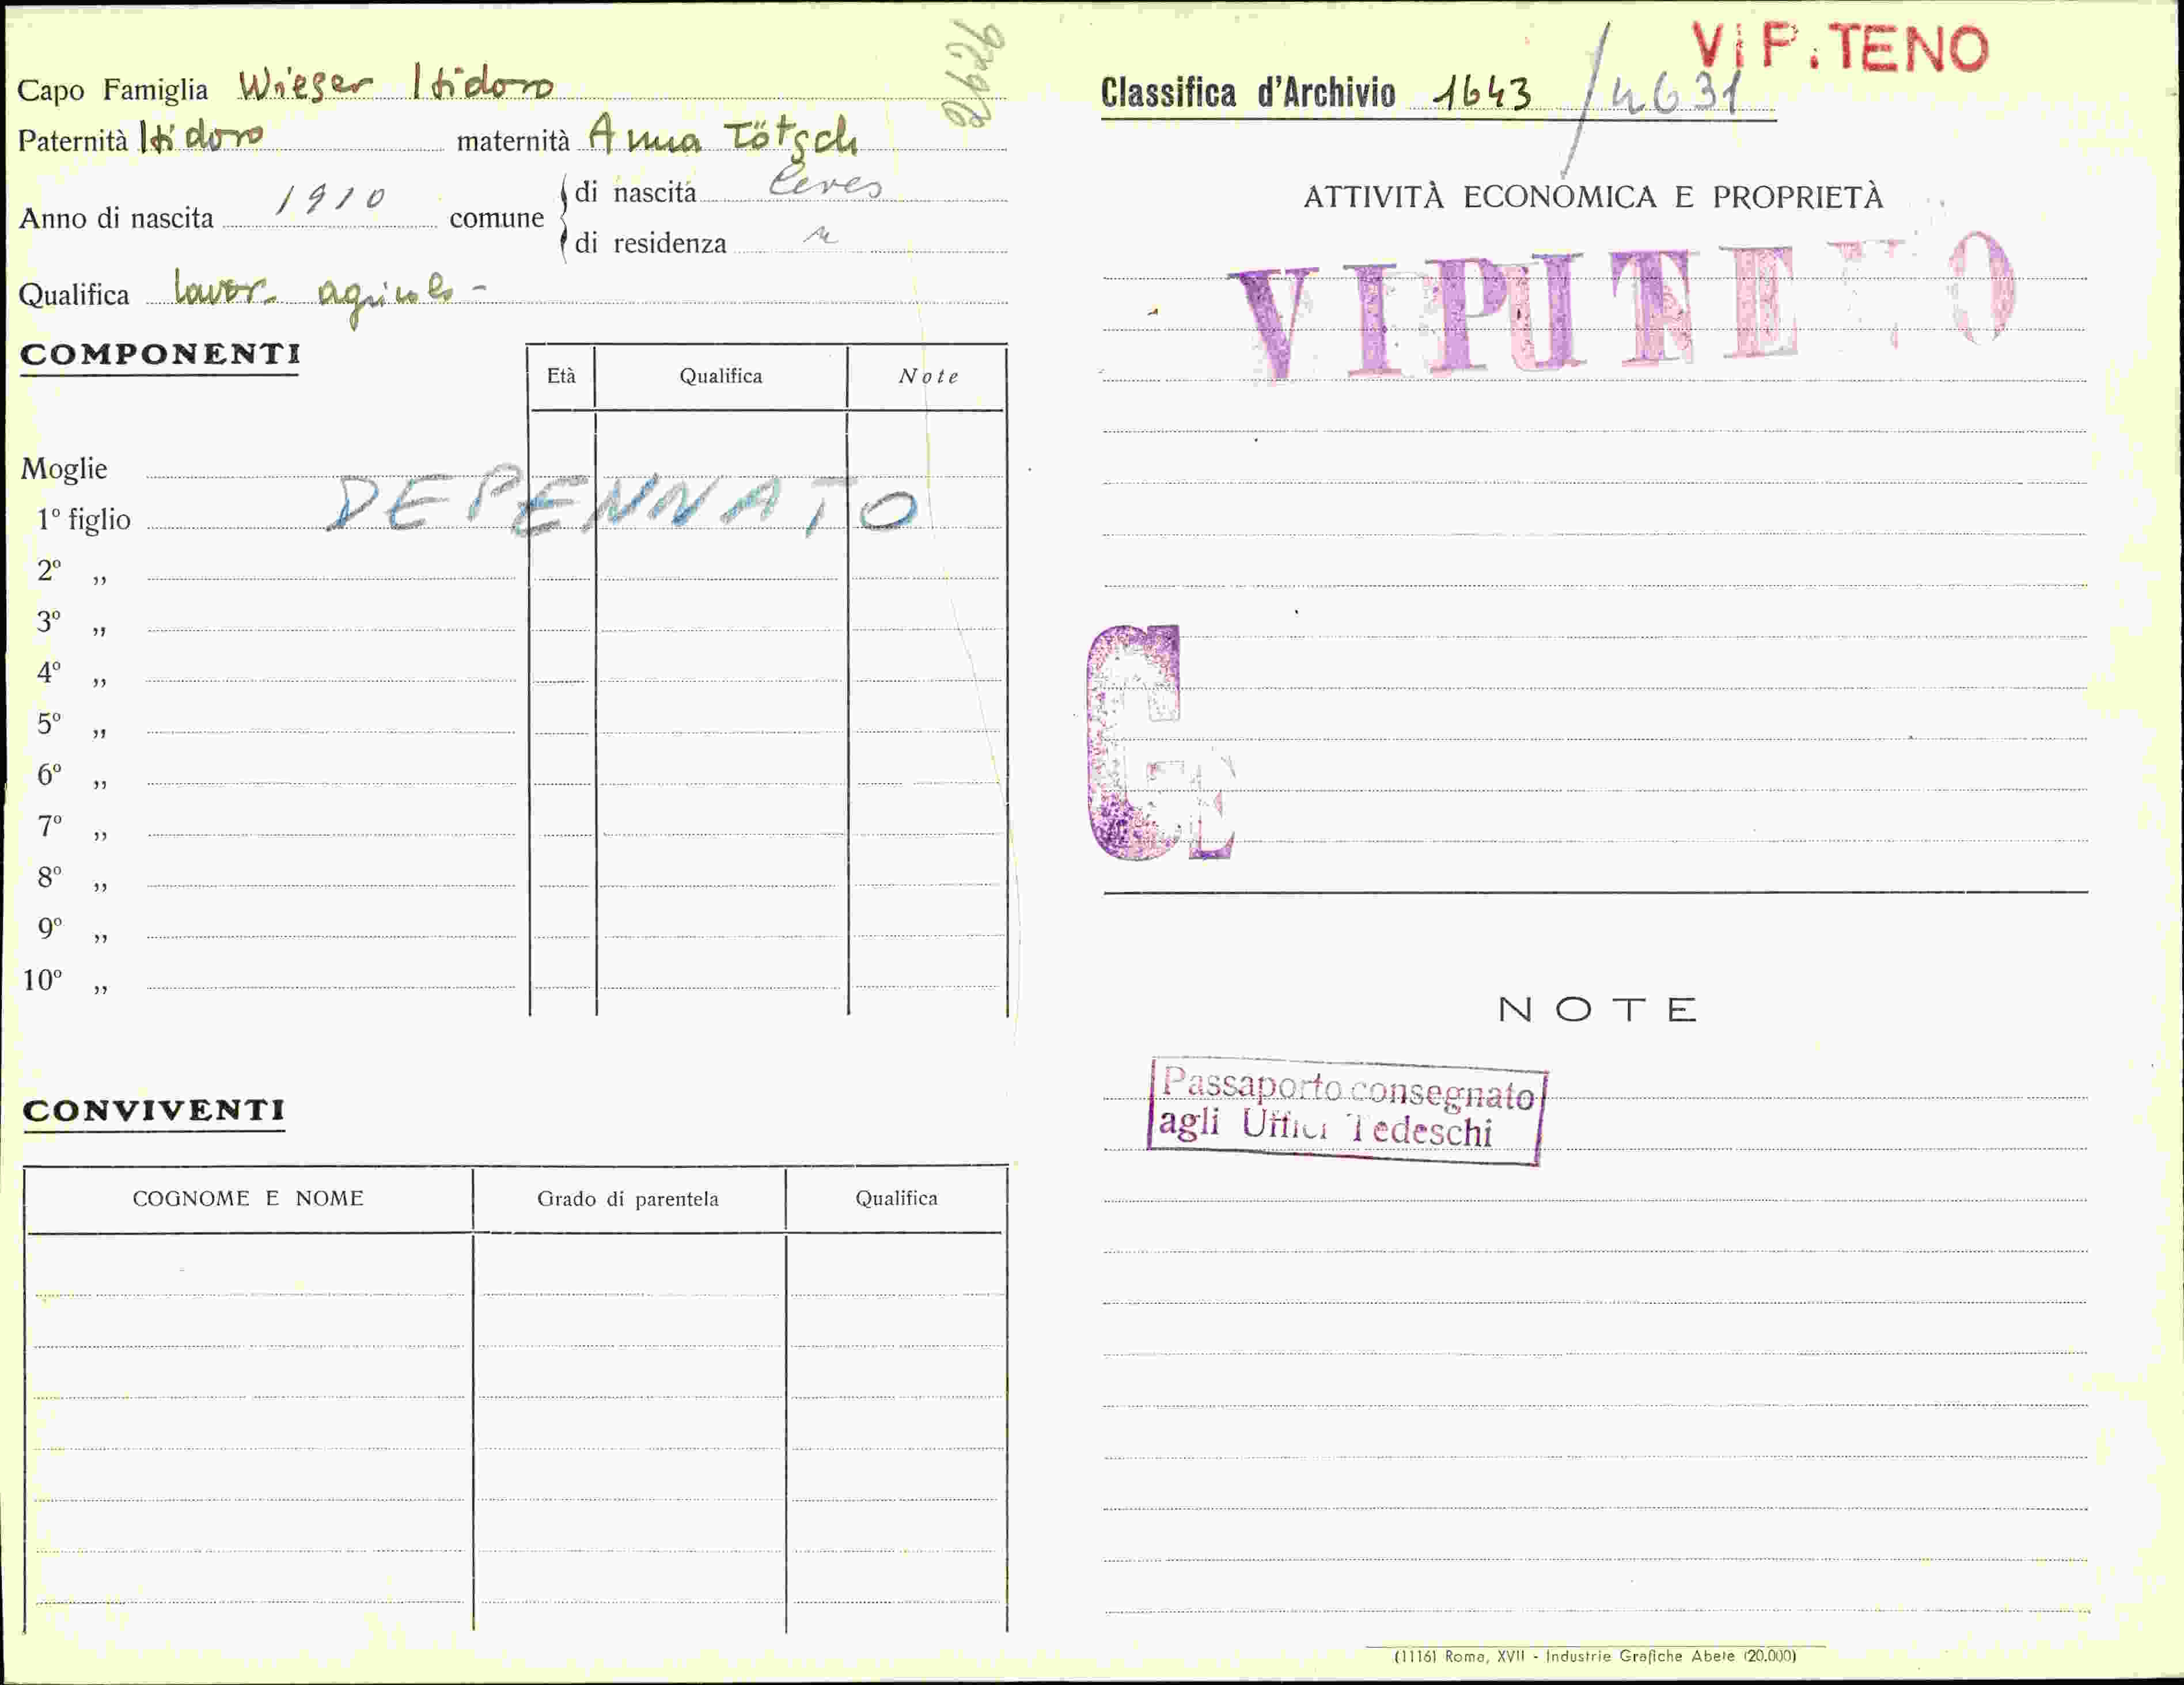 Capo Famiglia Wieser Isidoro
Paternità Isidoro maternità Anna Tötsch
Anno di nascita 1910 comune di nascita Ceves
di residenza
Qualifica lavor. agricolo -
COMPONENTI
Età Qualifica Note
Moglie
1º figlio
DEPENNATO
2º „
3º „
4º „
5º „
6º „
7º „
8º „
9º „
10º „
CONVIVENTI
COGNOME E NOME Grado di parentela Qualifica
VIPITENO
Classifica d'Archivio 1643 / 4631
ATTIVITÀ ECONOMICA E PROPRIETÀ
VIPITENO
NOTE
Passaporto consegnato
agli Uffici Tedeschi
(1116) Roma, XVII - Industrie Grafiche Abete (20.000)